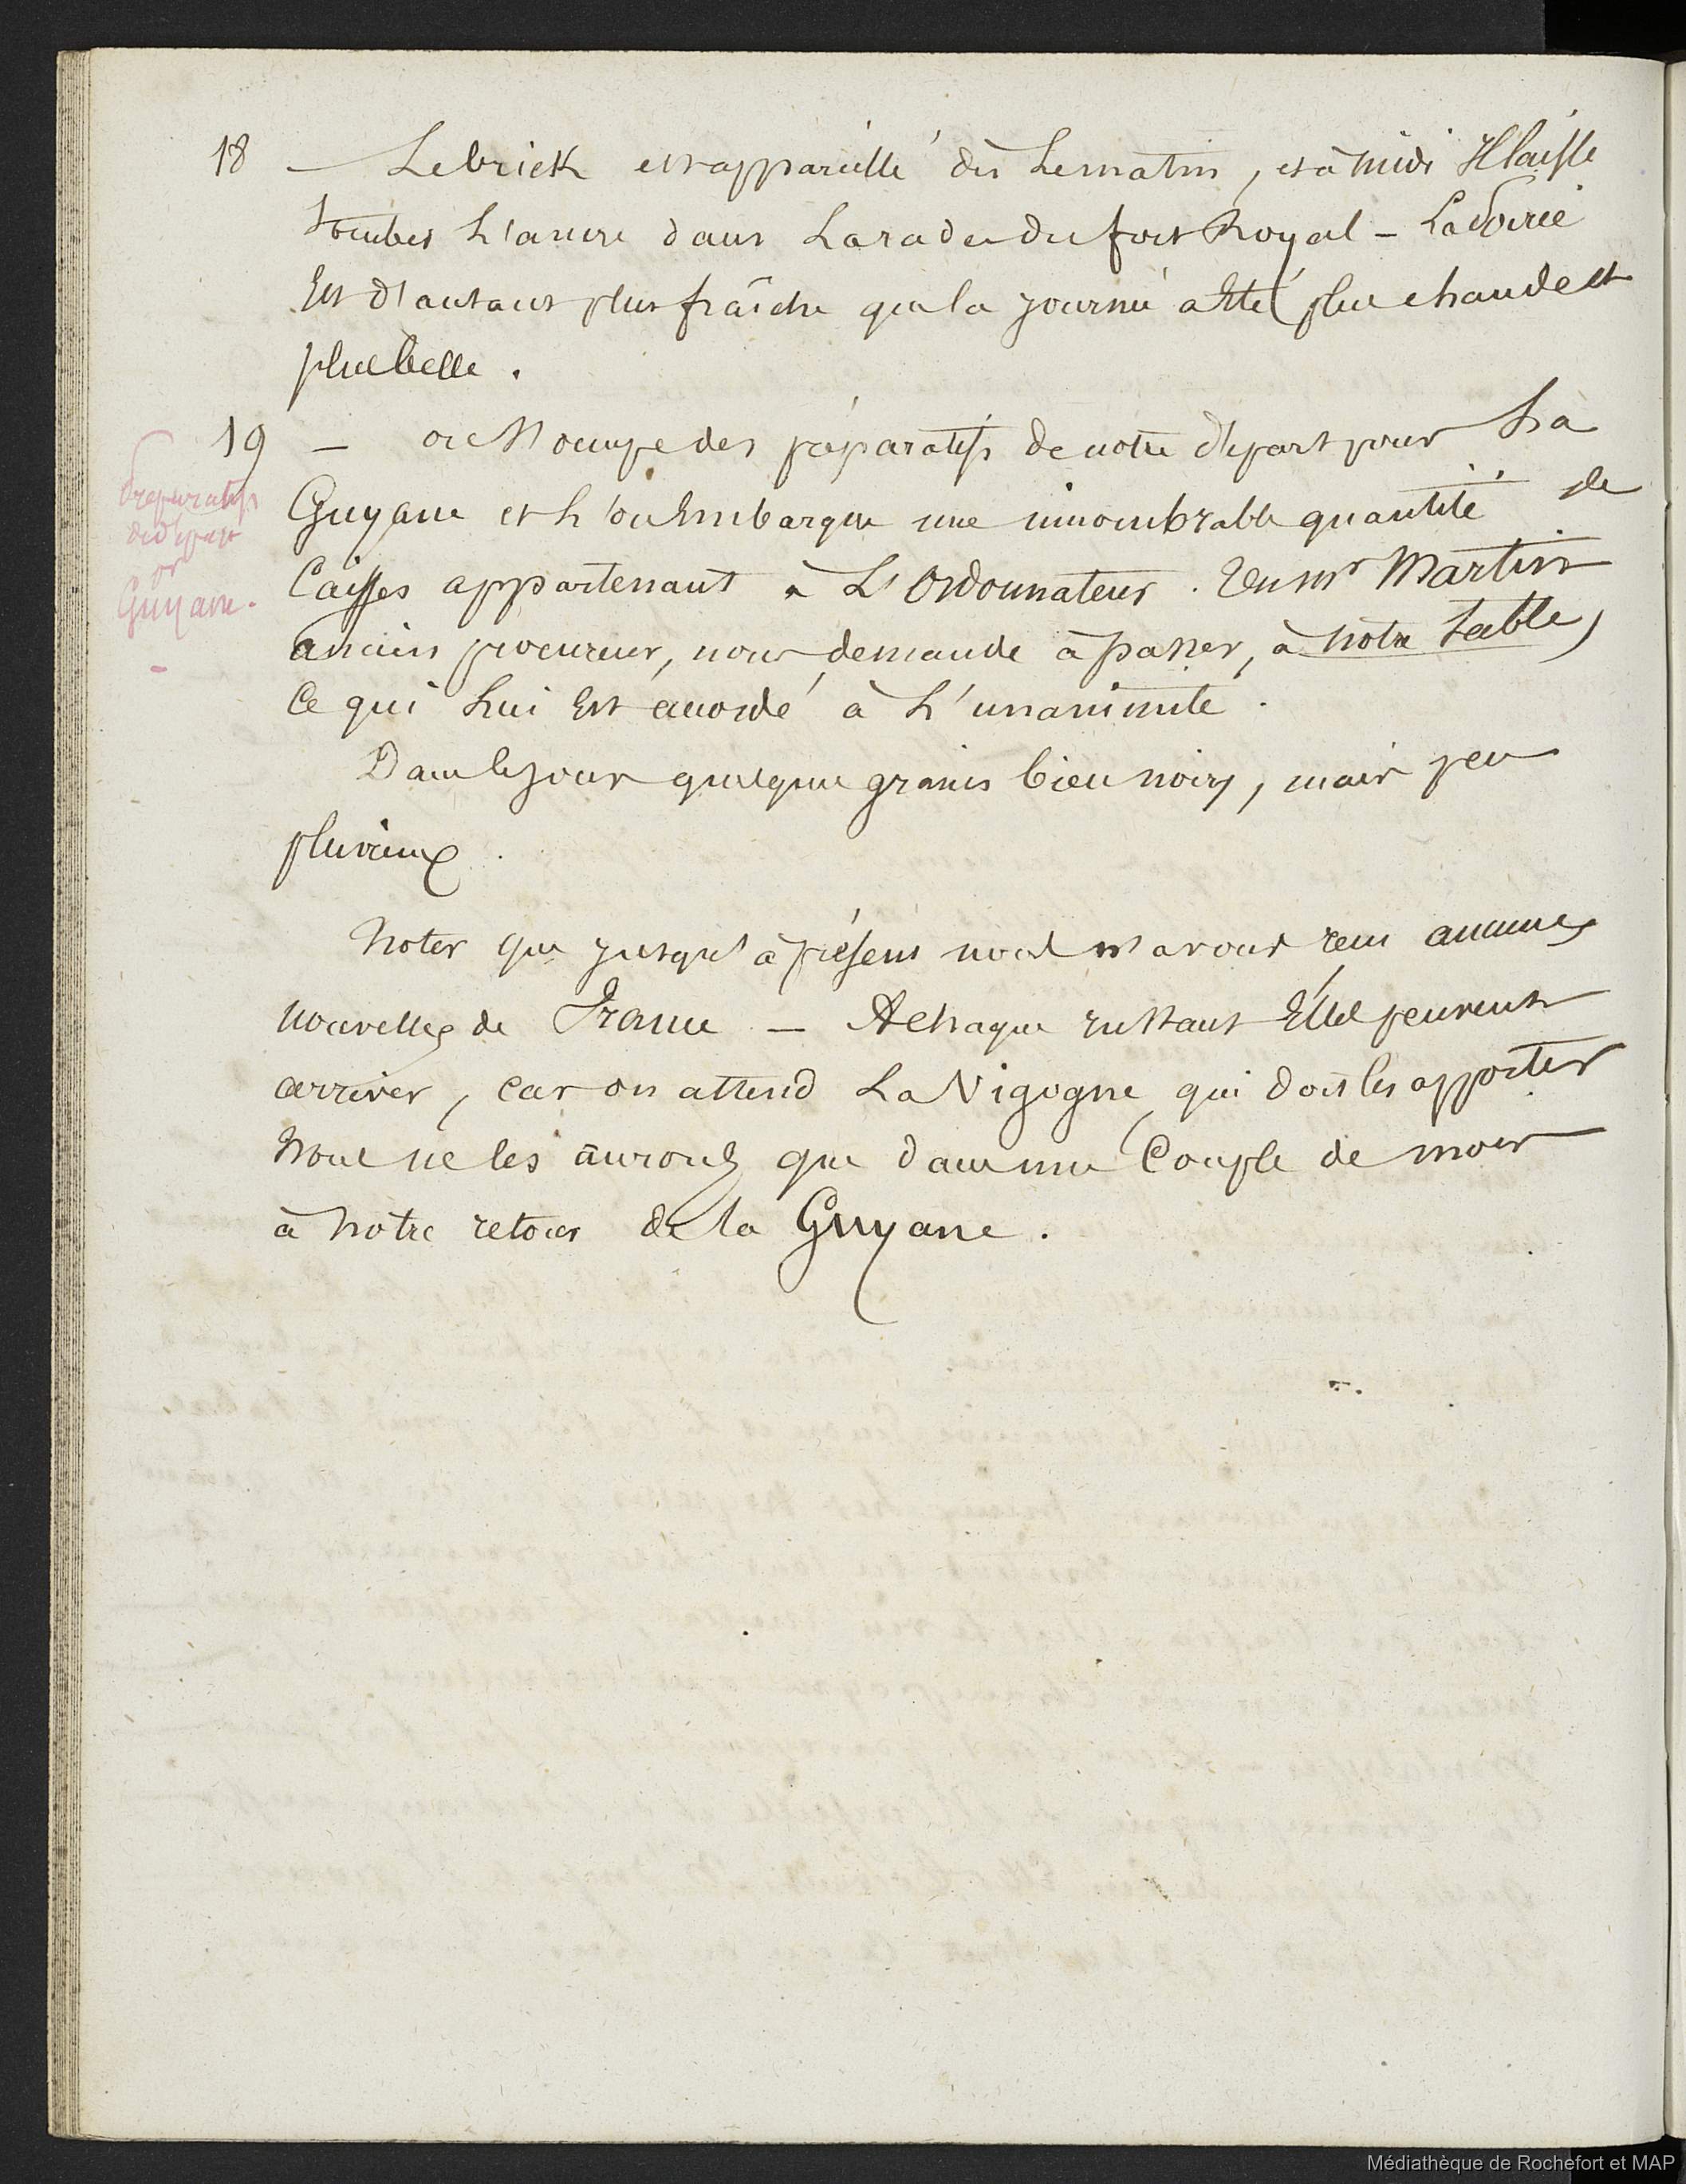 18 — Le brick est appareillé dès le matin, et à midi Il laisse
tomber l'ancre dans la rade du fort Royal - La soirée
Est d'autant plus fraîche que la journée a Eté plus chaude et
plus belle.
19 — on s'occupe des préparatifs de notre départ pour La
Guyane et l'on Embarque une innombrable quantité de
Caisses appartenant à L'Ordonnateur. Un Mr Martin
ancien procureur, nous demande à passer, à notre table,
Ce qui Lui Est accordé à L'unanimité.
préparatifs
de départ
pr
Guyane.
Dans le jour quelques grains bien noirs, mais peu
pluvieux.
Noter que jusqu'à présent nous n'avons reçu aucunes
nouvelles de France — A chaque instant Elles peuvent
arriver, car on attend La Vigogne qui doit les apporter
Nous ne les aurons que dans une Couple de mois
à notre retour de la Guyane.
Médiathèque de Rochefort et MAP